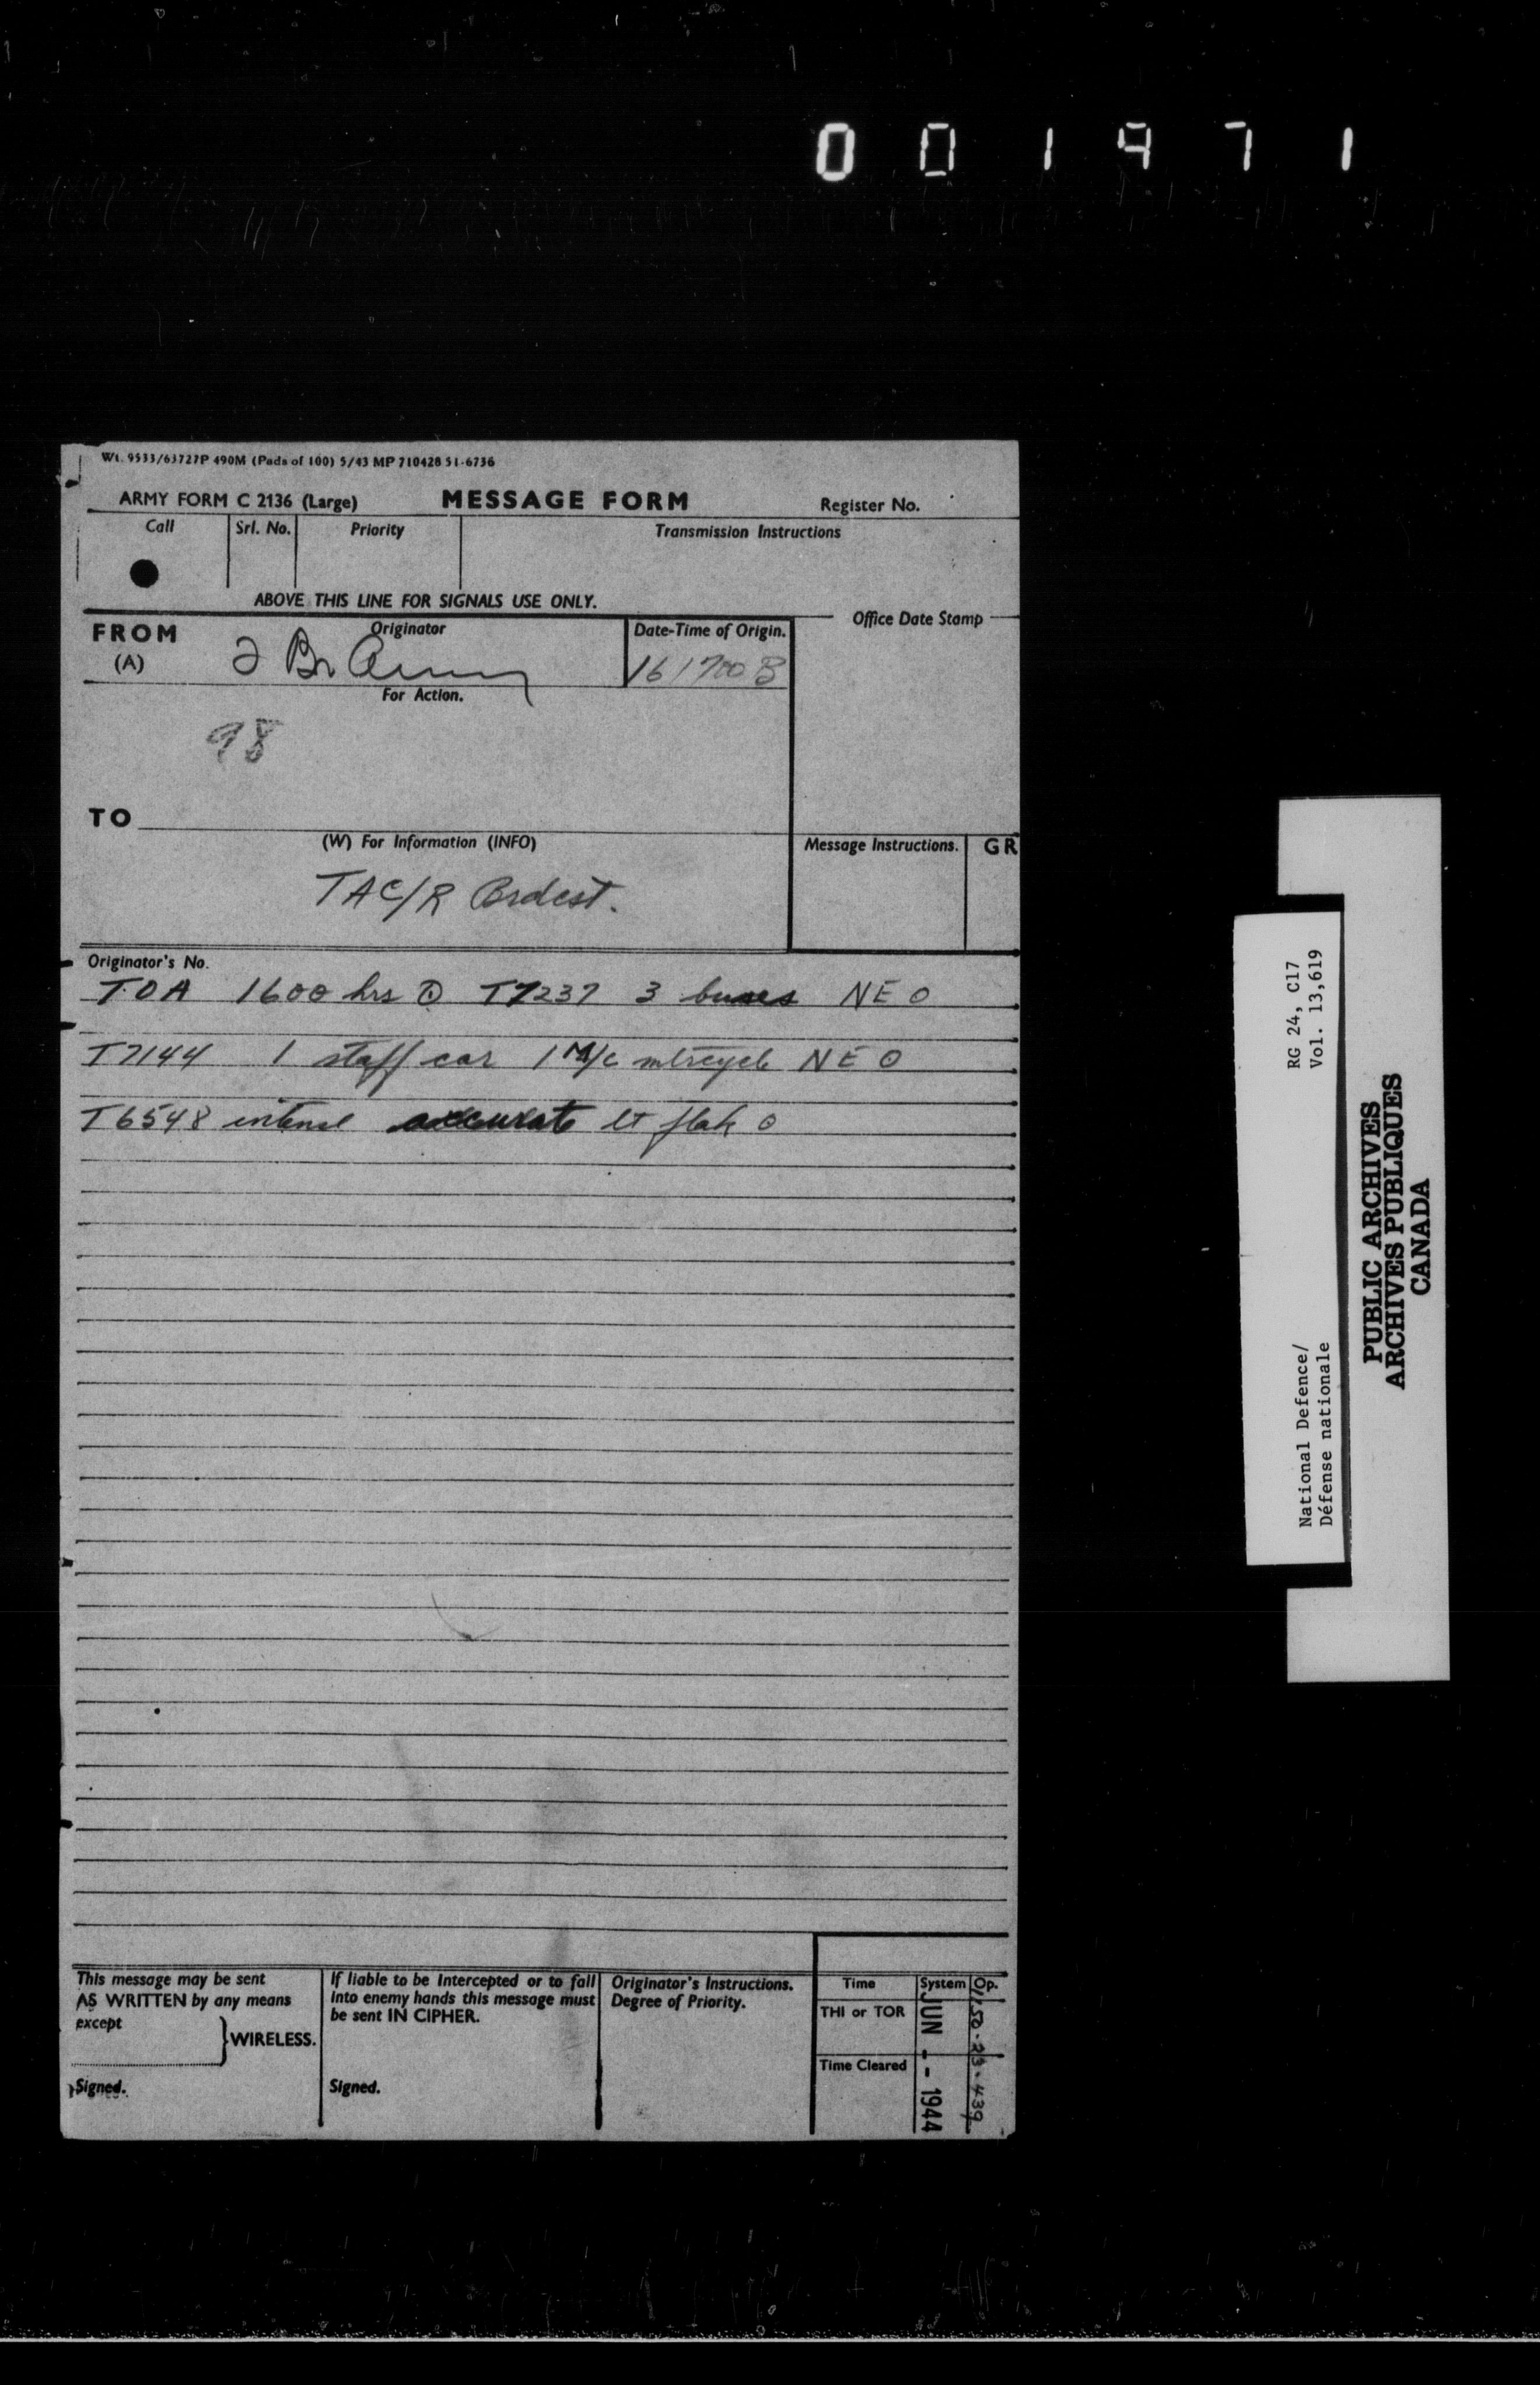 001971
Wt. 9533/63727P 490M (Pads of 100) 5/43 MP 710428 51-6736
ARMY FORM C 2136 (Large) MESSAGE FORM Register No.
Call Srl. No. Priority Transmission Instructions
ABOVE THIS LINE FOR SIGNALS USE ONLY.
Office Date Stamp
FROM (A) Originator Date-Time of Origin.
2 Br Army 161700B
For Action.
98
TO
(W) For Information (INFO) Message Instructions. GR
TAC/R Brdcst.
Originator's No.
TOA 1600 hrs T7237 3 buses NE O
T7144 1 staff car 1 M/C NE O
T6548 intense accurate lt flak o
This message may be sent
AS WRITTEN by any means
except
} WIRELESS.
Signed.
If liable to be intercepted or to fall
into enemy hands this message must
be sent IN CIPHER.
Signed.
Originator's Instructions.
Degree of Priority.
Time System Op.
THI or TOR
Time Cleared
JUN - - 1944
RG 24, C17
Vol. 13,619
National Defence/
Défense nationale
PUBLIC ARCHIVES
ARCHIVES PUBLIQUES
CANADA